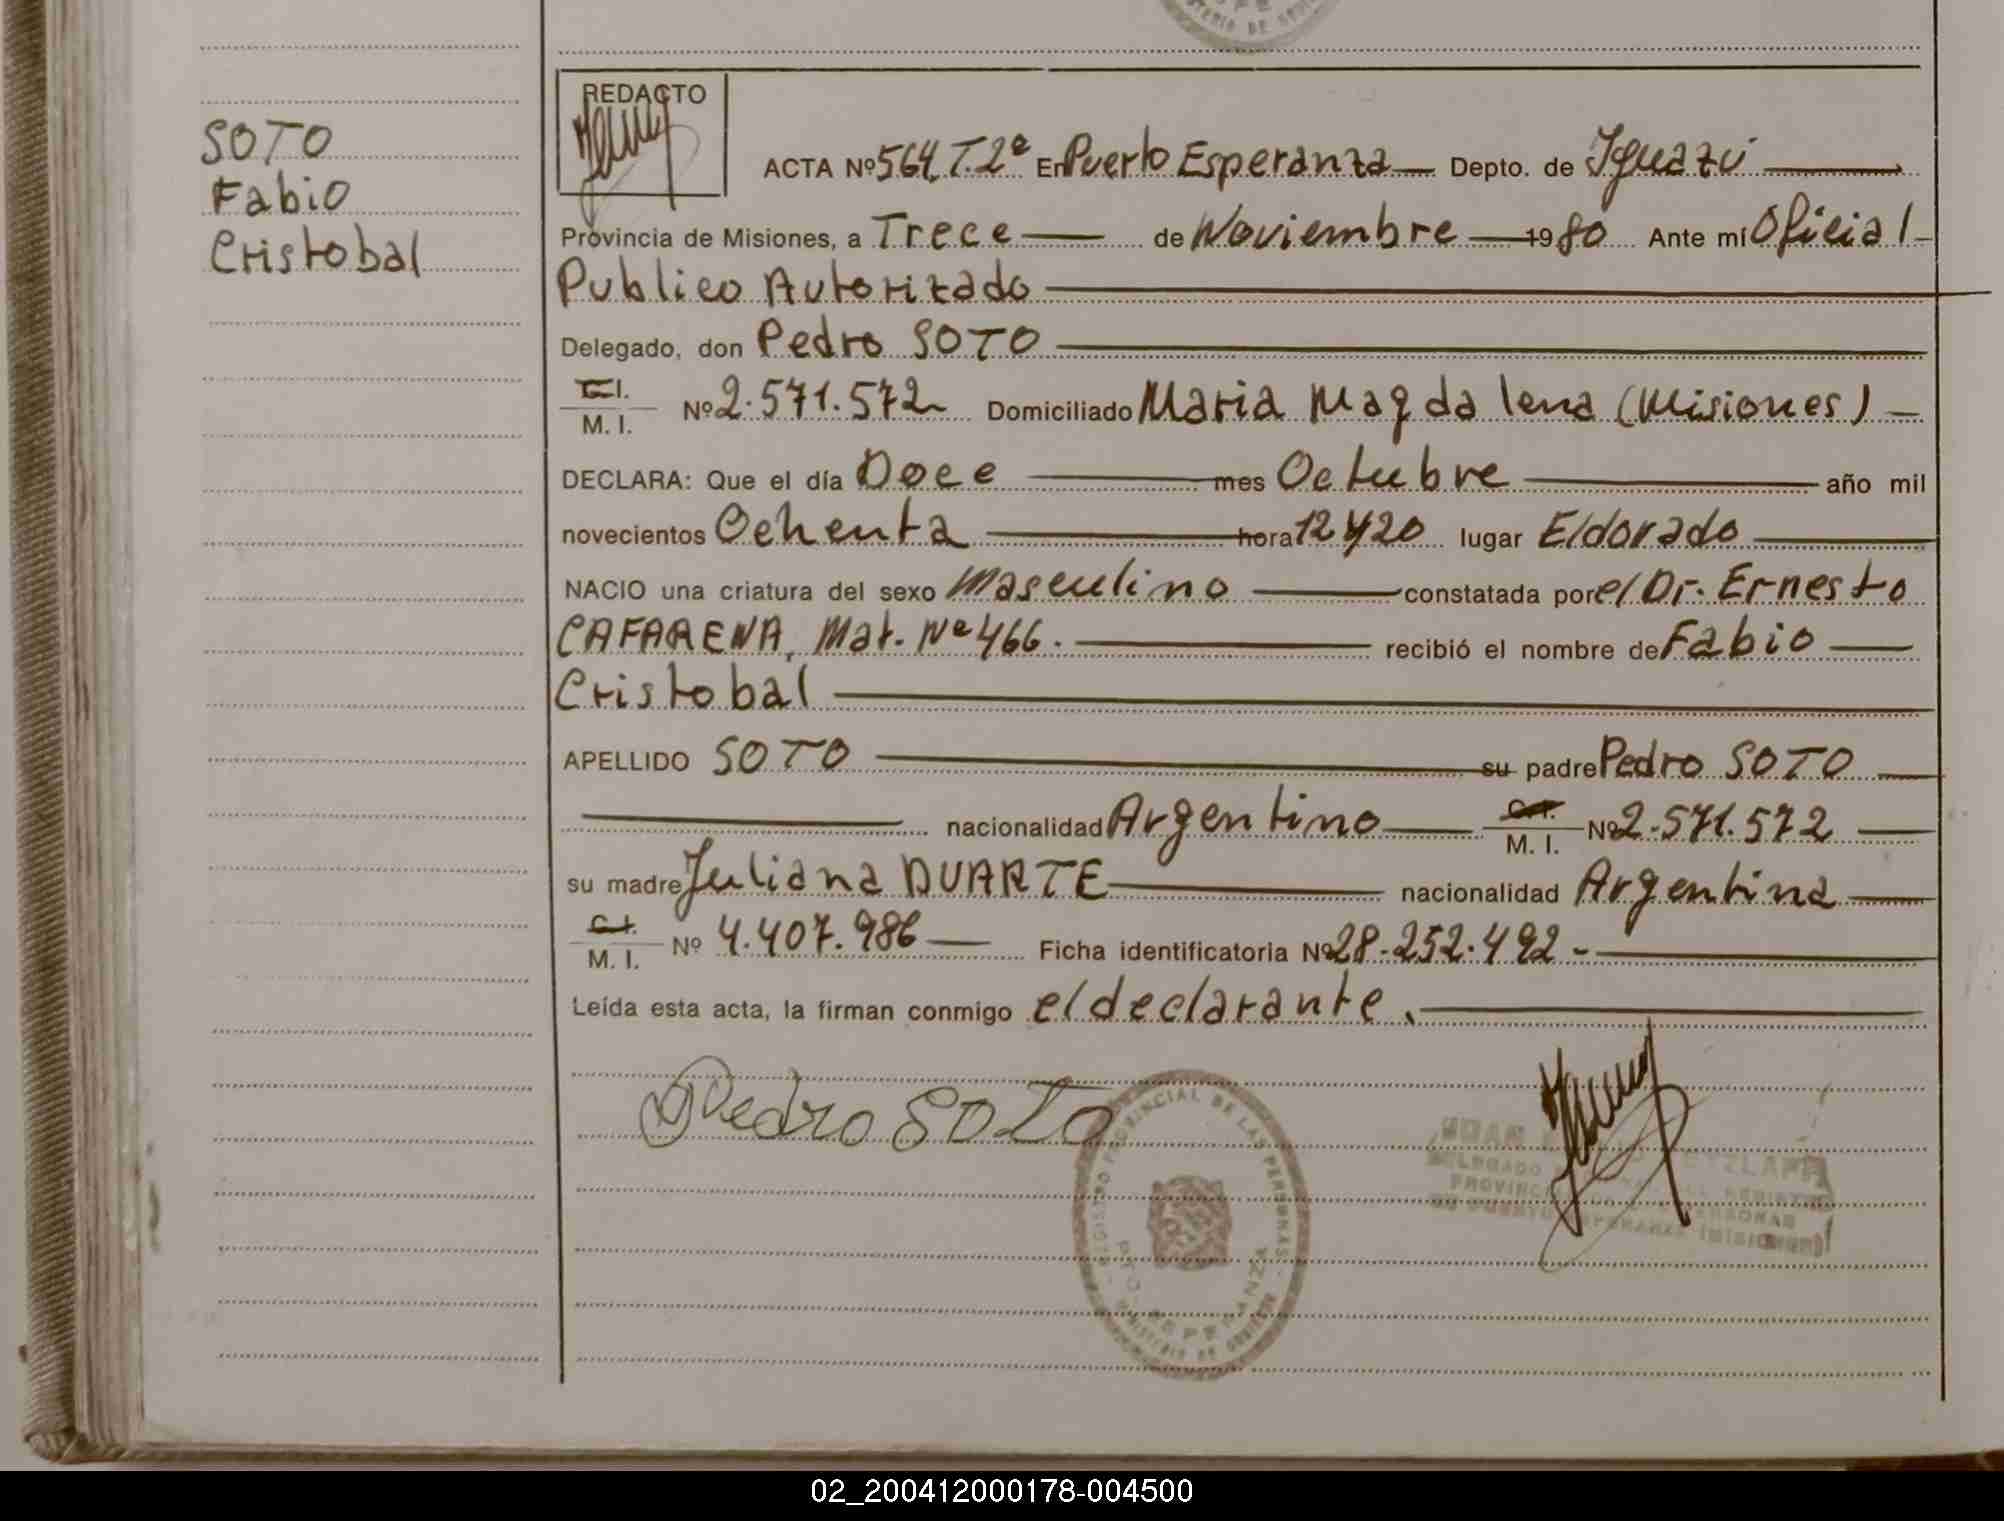 SOTO
Fabio
Cristobal
REDACTO
ACTA Nº 564, T.2º En Puerto Esperanza Depto. de Iguazú
Provincia de Misiones, a Trece de Noviembre 1980 Ante mí Oficial
Publico Autorizado
Delegado, don Pedro SOTO
C.I.
M. I. Nº 2.571.572 Domiciliado Maria Magdalena (Misiones)
DECLARA: Que el día Doce mes Octubre año mil
novecientos Ochenta hora 12 y 20 lugar Eldorado
NACIO una criatura del sexo Masculino constatada por el Dr. Ernesto
CAFARENA, Mat. Nº 466. recibió el nombre de Fabio
Cristobal
APELLIDO SOTO su padre Pedro SOTO
nacionalidad Argentino C.I. M. I. Nº 2.571.572
su madre Juliana DUARTE nacionalidad Argentina
C.I.
M. I. Nº 4.407.986 Ficha identificatoria Nº 28.252.492.-
Leída esta acta, la firman conmigo el declarante.
Pedro SOTO
REGISTRO PROVINCIAL DE LAS PERSONAS
PTO. ESPERANZA
MINISTERIO DE GOBIERNO
JUAN
DELEGADO
02_200412000178-004500